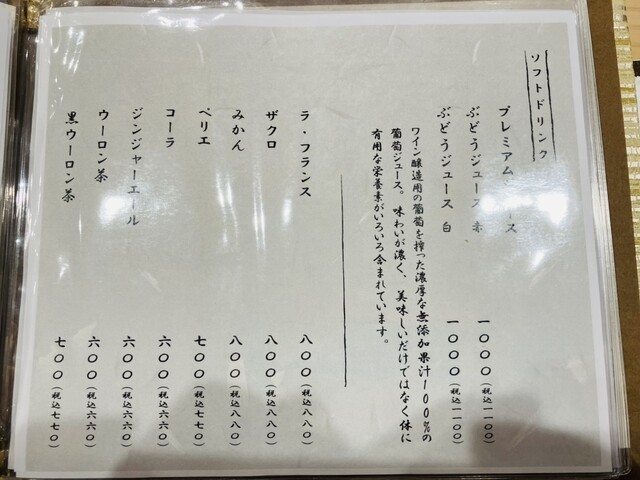 ソフトドリンク
プレミアムジュース
ぶどうジュース 赤 一〇〇〇(税込一一〇〇)
ぶどうジュース 白 一〇〇〇(税込一一〇〇)
ワイン醸造用の葡萄を搾った濃厚な無添加果汁100%の
葡萄ジュース。味わいが濃く、美味しいだけではなく体に
有用な栄養素がいろいろ含まれています。
ラ・フランス 八〇〇(税込八八〇)
ザクロ 八〇〇(税込八八〇)
みかん 八〇〇(税込八八〇)
ペリエ 七〇〇(税込七七〇)
コーラ 六〇〇(税込六六〇)
ジンジャーエール 六〇〇(税込六六〇)
ウーロン茶 六〇〇(税込六六〇)
黒ウーロン茶 七〇〇(税込七七〇)